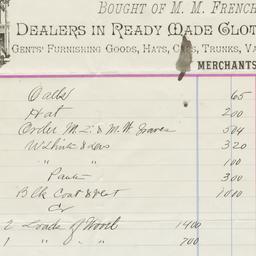 BOUGHT OF M. M. FRENCH
DEALERS IN READY MADE CLOT
GENTS' FURNISHING GOODS, HATS, CAPS, TRUNKS, VA
MERCHANTS
65
Hat 200
Order M.L. & M.H. 504
W Shirt & 320
" " 100
Pants 300
Blk Coat & Vest 1000
Cr
2 Loads of Wood 1400
1 " " " 700